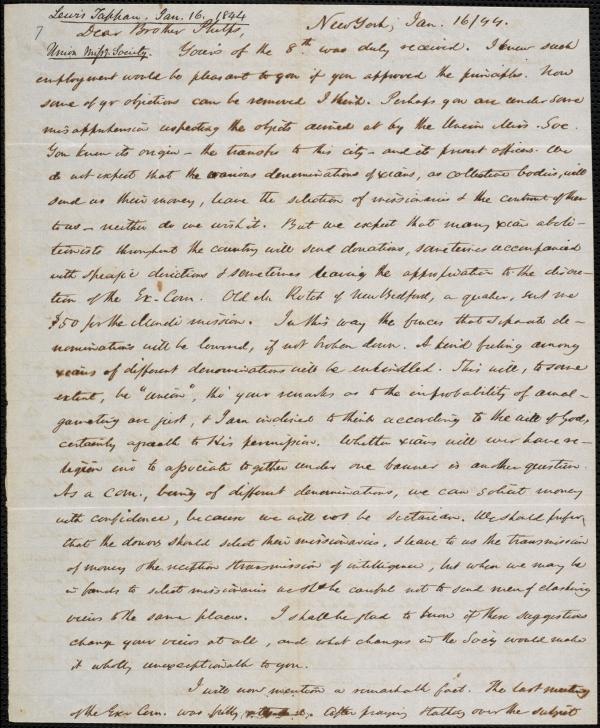 Lewis Tappan. Jan. 16. 1844
7
New York, Jan. 16/44.
Dear Brother Phelps,
Union Miss. Society.
Yours of the 8th was duly received. I knew such
employment would be pleasant to you if you approved the principles. Now
some of yr objections can be removed I think. Perhaps you are under some
misapprehension respecting the objects aimed at by the Union Miss. Soc.
You know its origin - the transfer to this city - and its present officers. We
do not expect that the various denominations of xians, as collective bodies, will
send us their money, leave the selection of missionaries & the control of them
to us - neither do we wish it. But we expect that many xian aboli-
tionists throughout the country will send donations, sometimes accompanied
with specific directions & sometimes leaving the appropriation to the discre-
tion of the Ex. Com. Old Mr Rotch of New Bedford, a quaker, sent me
$50 for the Mendi mission. In this way the fences that separate de-
nominations will be lowered, if not broken down. A kind feeling among
xians of different denominations will be enkindled. This will, to some
extent, be "union", tho' your remarks as to the improbability of amal-
gamating are just, & I am inclined to think according to the will of God,
certainly agreeable to His permission. Whether xians will ever have re-
ligion eno' to associate together under one banner is another question.
As a com., being of different denominations, we can solicit money
with confidence, because we will not be sectarian. We should prefer
that the donors should select their missionaries, & leave to us the transmission
of money & the reception & transmission of intelligence, but when we may be
in funds to select missionaries we shd be careful not to send men of clashing
views to the same places. I shall be glad to know if these suggestions
change your views at all, and what changes in the Society would make
it wholly unexceptionable to you.
I will now mention a remarkable fact. The last meeting
of the Ex. Com. was fully After praying & talking over the subject